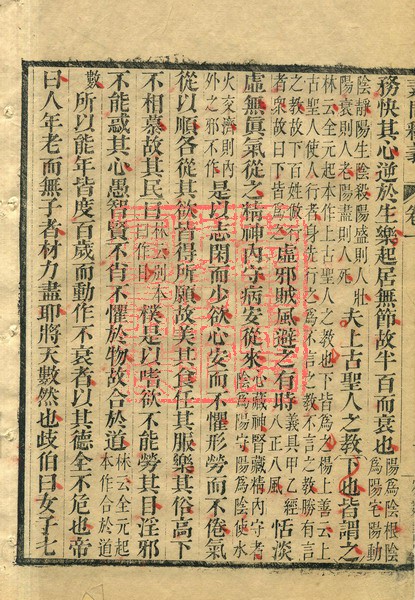 務快其心逆於生樂起居無節故半百而衰也陰爲陽根陰爲陽宅陽動
陰靜陽生陰殺陽盛則人壯陽衰則人老陽盡則人死夫上古聖人之教下也皆謂之
林云全元起本作上古聖人之教也下皆爲之楊上善云上古聖人使人行者身先行之爲不言之教不言之教勝有言
之教故下百姓倣行者衆故曰下皆爲之虛邪賊風避之有時八正八風義具甲乙經恬淡
虛無眞氣從之精神內守病安從來心藏神腎藏精內守者陰爲陽守陽爲陰使水
火交濟則內外之邪不作是以志閑而少欲心安而不懼形勞而不倦氣
從以順各從其欲皆得所願故美其食任其服樂其俗高下
不相慕故其民曰林云別本曰作日樸是以嗜欲不能勞其目淫邪
不能惑其心愚智賢不肖不懼於物故合於道林云全元起本作合於道
數所以能年皆度百歲而動作不衰者以其德全不危也帝
曰人年老而無子者材力盡耶將天數然也歧伯曰女子七